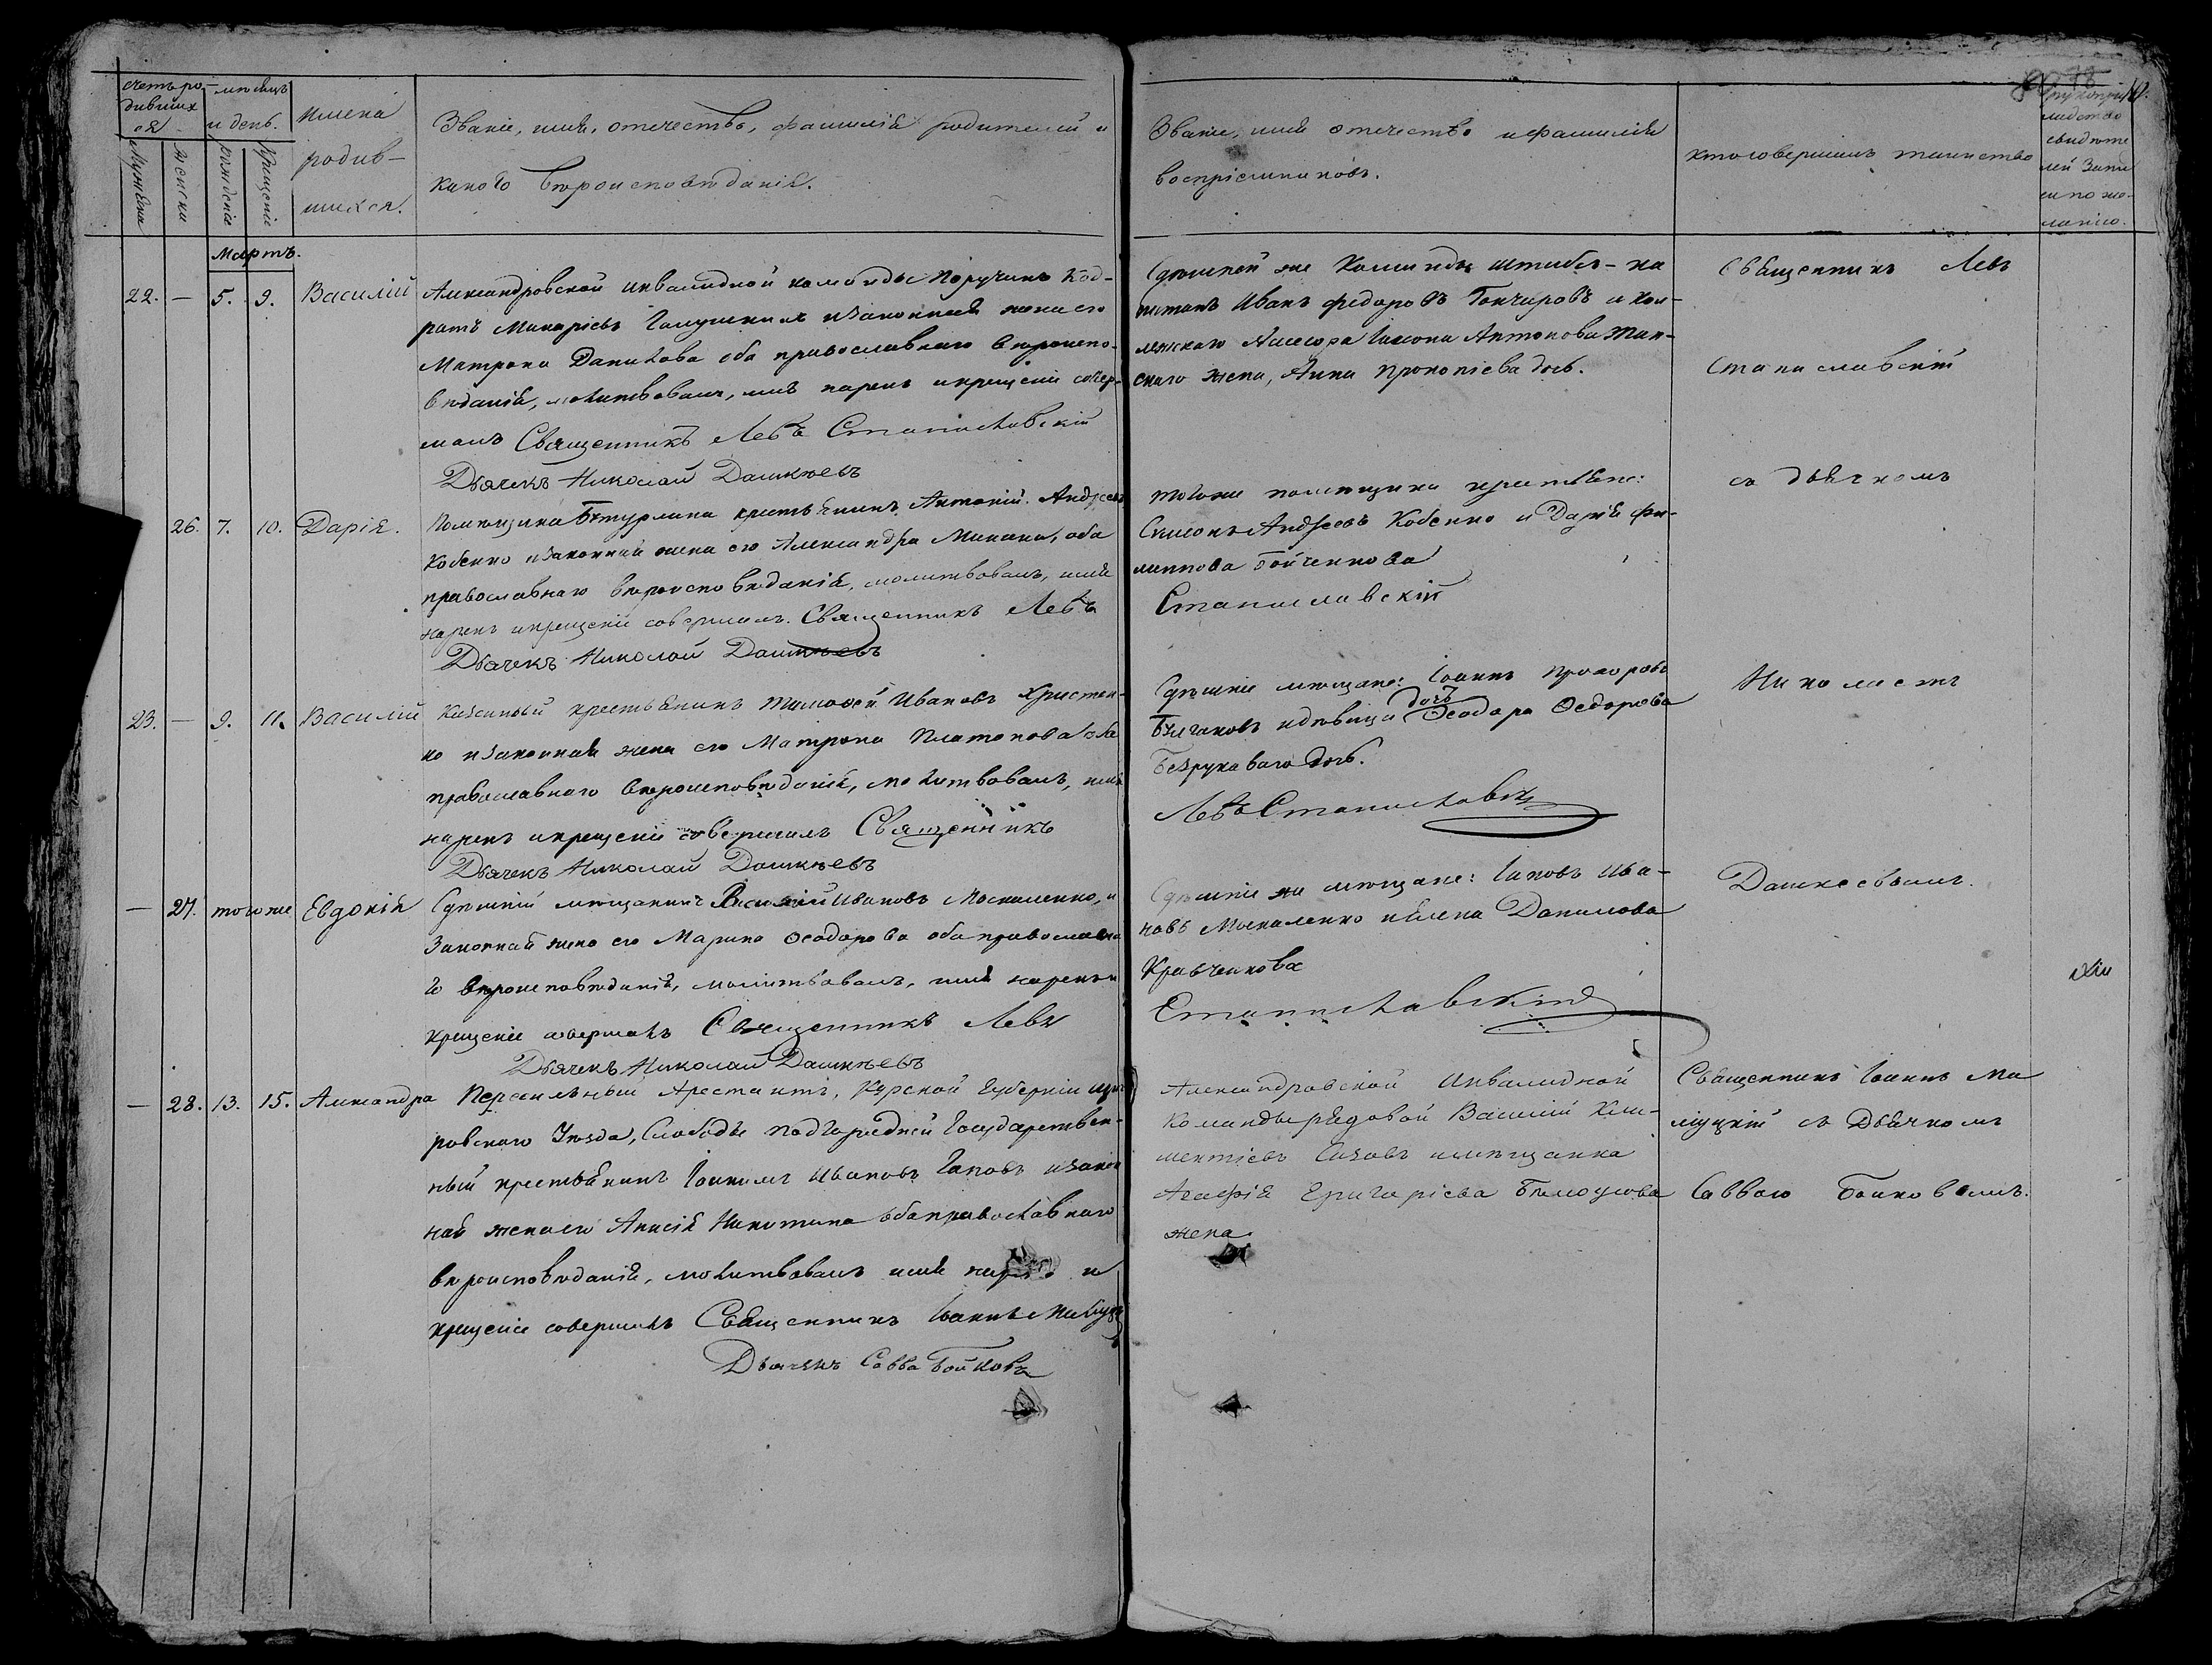 счетъ ро-
дивших
ся
мѣсяцъ
и день.
Мужеска
женски
рожденіе
Крещеніе
имена
родив-
шихся.
Званіе, имя, отечество, фамилія родителей и
какого вѣроисповѣданія.
Званіе, имя отечество и фамилія
воспріемниковъ.
кто совершалъ таинство
свидѣте
лей запи
си по же-
ланію.
Мартъ.
22. — 5. 9. Василій
Александровской инвалидной команды Поручикъ Код-
ратъ Макаріевъ Галушкинъ и законная жена его
Матрона Данилова оба православнаго вѣроиспо-
вѣданія, молитвовалъ, имя нарекъ и крещеніе совер-
шалъ Священникъ Левъ Станиславскій
Дьячекъ Николай Дашкѣевъ
Здѣшней же Команды штабсъ-ка
питанъ Иванъ Федоровъ Гончаровъ и Кол-
лежскаго Асесора Антонова
жена, Анна Прокопіева дочь.
Священникъ Левъ
Станиславскій
26. 7. 10. Дарія.
Помѣщика Бутурлина крестьянинъ Антоній Андреевъ
Кобенко и законная жена его Александра Минаина, оба
православнаго вѣроисповѣданія, молитвовалъ, имя
нарекъ и крещеніе совершалъ. Священникъ Левъ
Дьячекъ Николай Дашкѣевъ
того же помѣщика крестьяне:
Симеонъ Андреевъ Кобенко и Дарія Фи-
липпова Бойченкова
Станиславскій
съ дьячкомъ
23. — 9. 11. Василій
Казенный крестьянинъ Тимофей Ивановъ Христен-
ко и законная жена его Матрона Платонова оба
православнаго вѣроисповѣданія, молитвовалъ, имя
нарекъ и крещеніе совершалъ Священникъ
Дьячекъ Николай Дашкѣевъ
Здѣшніе мѣщане: Іоаннъ Прохоровъ
дочь
и дѣвица Ѳеодора Ѳедорова
Безрукаваго дочь.
Левъ Станиславскій
Николаемъ
— 27. того же Евдокія
Здѣшній мѣщанинъ Василій Ивановъ Москаленко, и
Законная жена его Марина Ѳеодорова оба православна
го вѣроисповѣданія, молитвовалъ, имя нарекъ и
крещеніе совершалъ Священникъ Левъ
Дьячекъ Николай Дашкѣевъ
Здѣшніе же мѣщане: Іаковъ Ива-
новъ Москаленко и Елена Данилова
Кравченкова
Станиславскій
Дашкеевымъ.
— 28. 13. 15. Александра
Пересильный Арестантъ, Курской Губерніи Щиг
ровскаго Уѣзда, Слободы Подгородней Государствен-
ный крестьянинъ Іоакимъ Ивановъ Гаповъ и закон
ная жена его Анисія Никитина оба православнаго
вѣроисповѣданія, молитвовалъ имя и
крещеніе совершалъ Священникъ Іоаннъ
Дьячекъ Савва Бойковъ
Александровской Инвалидной
Команды рядовой Василій Кли-
ментіевъ Сизовъ и мѣщанка
Агафія Григоріева Бѣлоусова
жена.
Священникъ Іоаннъ Ми
люцкій съ Дьячкомъ
Саввою Бойковымъ.